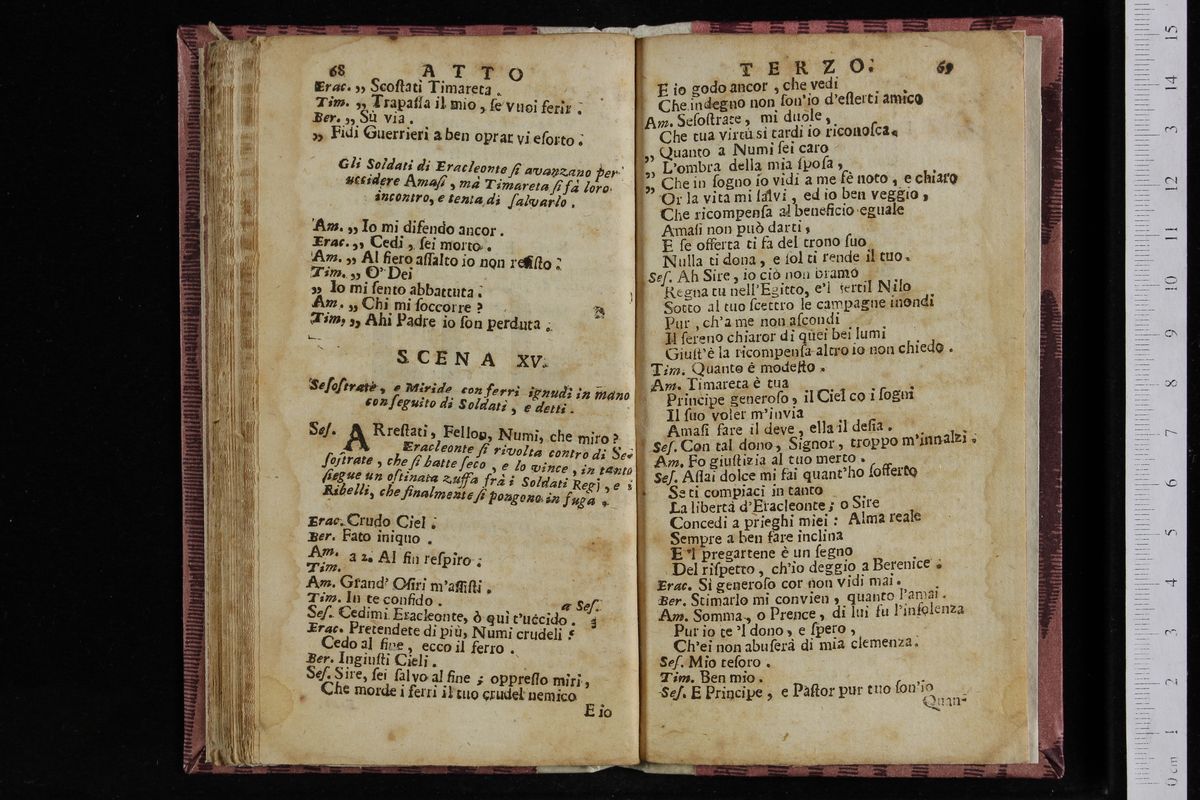 68 ATTO
Erac. „ Scoſtati Timareta.
Tim. „ Trapaſſa il mio, ſe vuoi ferir.
Ber. „ Sù via.
„ Fidi Guerrieri a ben oprar vi eſorto.
Gli Soldati di Eracleonte ſi avanzano per
uccidere Amaſi, mà Timareta ſi fà loro
incontro, e tenta di ſalvarlo.
Am. „ Io mi difendo ancor.
Erac. „ Cedi, ſei morto.
Am. „ Al fiero aſſalto io non reſiſto.
Tim. „ O' Dei
„ Io mi ſento abbattuta.
Am. „ Chi mi ſoccorre?
Tim. „ Ahi Padre io ſon perduta.
SCENA XV.
Seſoſtrate, e Miride con ferri ignudi in mano
con ſeguito di Soldati, e detti.
Seſ. ARreſtati, Fellon, Numi, che miro?
Eracleonte ſi rivolta contro di Se-
ſoſtrate, che ſi batte ſeco, e lo vince, in tanto
ſiegue un oſtinata zuffa frà i Soldati Regj, e i
Ribelli, che finalmente ſi pongono in fuga.
Erac. Crudo Ciel.
Ber. Fato iniquo.
Am.
a 2. Al fin reſpiro.
Tim.
Am. Grand' Oſiri m'aſſiſti.
Tim. In te confido.
a Seſ.
Seſ. Cedimi Eracleonte, ò quì t'uccido.
Erac. Pretendete di più, Numi crudeli?
Cedo al fine, ecco il ferro.
Ber. Ingiuſti Cieli.
Seſ. Sire, ſei ſalvo al fine; oppreſſo miri,
Che morde i ferri il tuo crudel nemico
E io
TERZO. 69
E io godo ancor, che vedi
Che indegno non ſon'io d'eſſerti amico
Am. Seſoſtrate, mi duole,
Che tua virtù si tardi io riconoſca.
„ Quanto a Numi ſei caro
„ L'ombra della mia ſpoſa,
„ Che in ſogno io vidi a me fè noto, e chiaro
Or la vita mi ſalvi, ed io ben veggio,
Che ricompenſa al beneficio eguale
Amaſi non può darti,
E ſe offerta ti fa del trono ſuo
Nulla ti dona, e ſol ti rende il tuo.
Seſ. Ah Sire, io ciò non bramo
Regna tu nell'Egitto, e'l fertil Nilo
Sotto al tuo ſcettro le campagne inondi
Pur, ch'a me non aſcondi
Il ſereno chiaror di quei bei lumi
Giuſt'è la ricompenſa altro io non chiedo.
Tim. Quanto è modeſto.
Am. Timareta è tua
Principe generoſo, il Ciel co i ſogni
Il ſuo voler m'invia
Amaſi fare il deve, ella il deſia.
Seſ. Con tal dono, Signor, troppo m'innalzi.
Am. Fo giuſtizia al tuo merto.
Seſ. Aſſai dolce mi fai quant'ho ſofferto
Se ti compiaci in tanto
La libertà d'Eracleonte; o Sire
Concedi a prieghi miei: Alma reale
Sempre a ben fare inclina
E 'l pregartene è un ſegno
Del riſpetto, ch'io deggio a Berenice.
Erac. Sì generoſo cor non vidi mai.
Ber. Stimarlo mi convien, quanto l'amai.
Am. Somma, o Prence, di lui fu l'inſolenza
Pur io te 'l dono, e ſpero,
Ch'ei non abuſerà di mia clemenza.
Seſ. Mio teſoro.
Tim. Ben mio.
Seſ. E Principe, e Paſtor pur tuo ſon'io
Quan-
0 cm 1 2 3 4 5 6 7 8 9 10 11 12 13 14 15